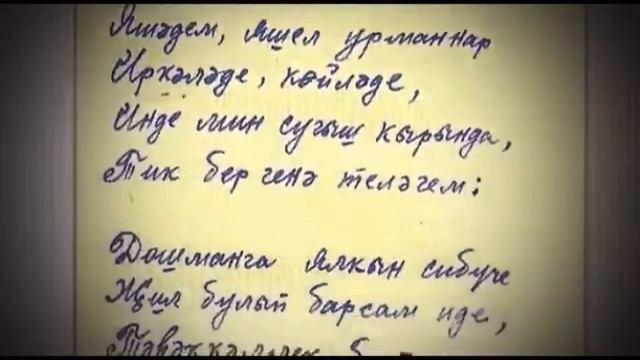 Яшәдем, яшел урманнар
Иркәләде, көйләде,
Инде мин сугыш кырында,
Тик бер генә теләгем:
Дошманга ялкын сибүче
Җил булып барсам иде,